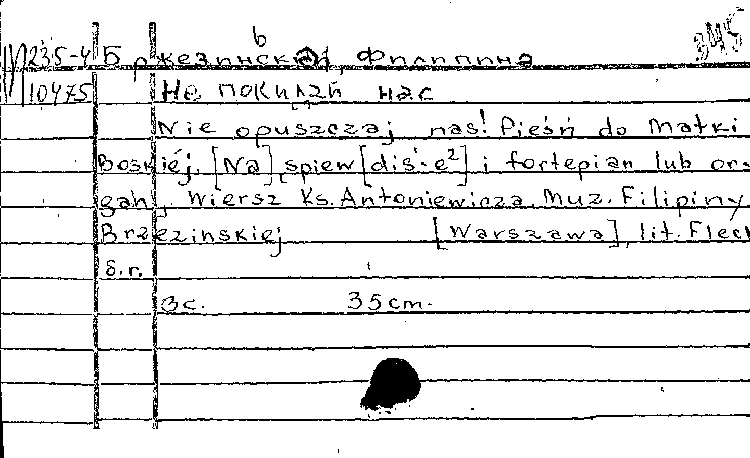 235-4 Бржезинская, Филиппина
10475 Не покидай нас
Nie opuszczaj nas! Pieśń do Matki
Boskiéj. [Na] spiew [dis'-e²] i fortepian lub or-
gan, Wiersz Ks. Antoniewicza. Muz. Filipiny
Brzezinskiej [Warszawa], lit. Flec
б.г.
3с. 35cm.